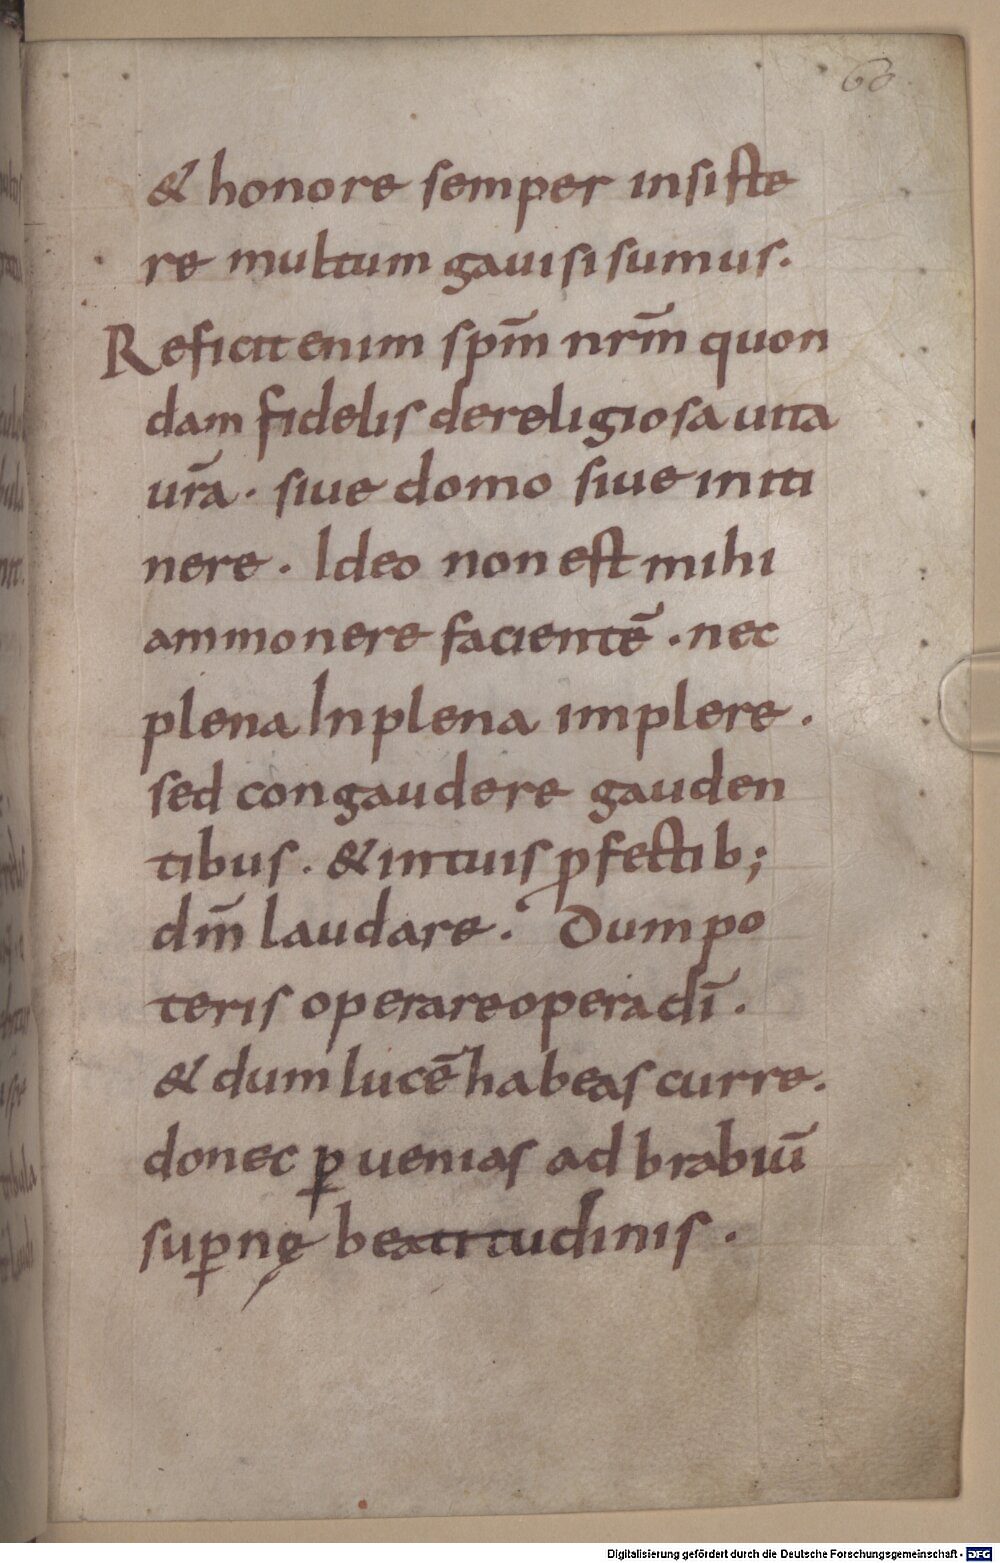 60
& honore semper insiste
re multum gauisi sumus.
Reficit enim spm̄ nrm̄ quon
dam fidelis de religiosa uita
ur̄a. siue domo siue in iti
nere. Ideo non est mihi
ammonere facientē. nec
plena In plena implere.
sed congaudere gauden
tibus. & in tuis ꝑfectib;
dm̄ laudare. Dum po
teris operare opera dī.
& dum lucē habeas curre.
donec ꝑuenias ad brabiū
suꝑnę beatitudinis.
Digitalisierung gefördert durch die Deutsche Forschungsgemeinschaft - DFG